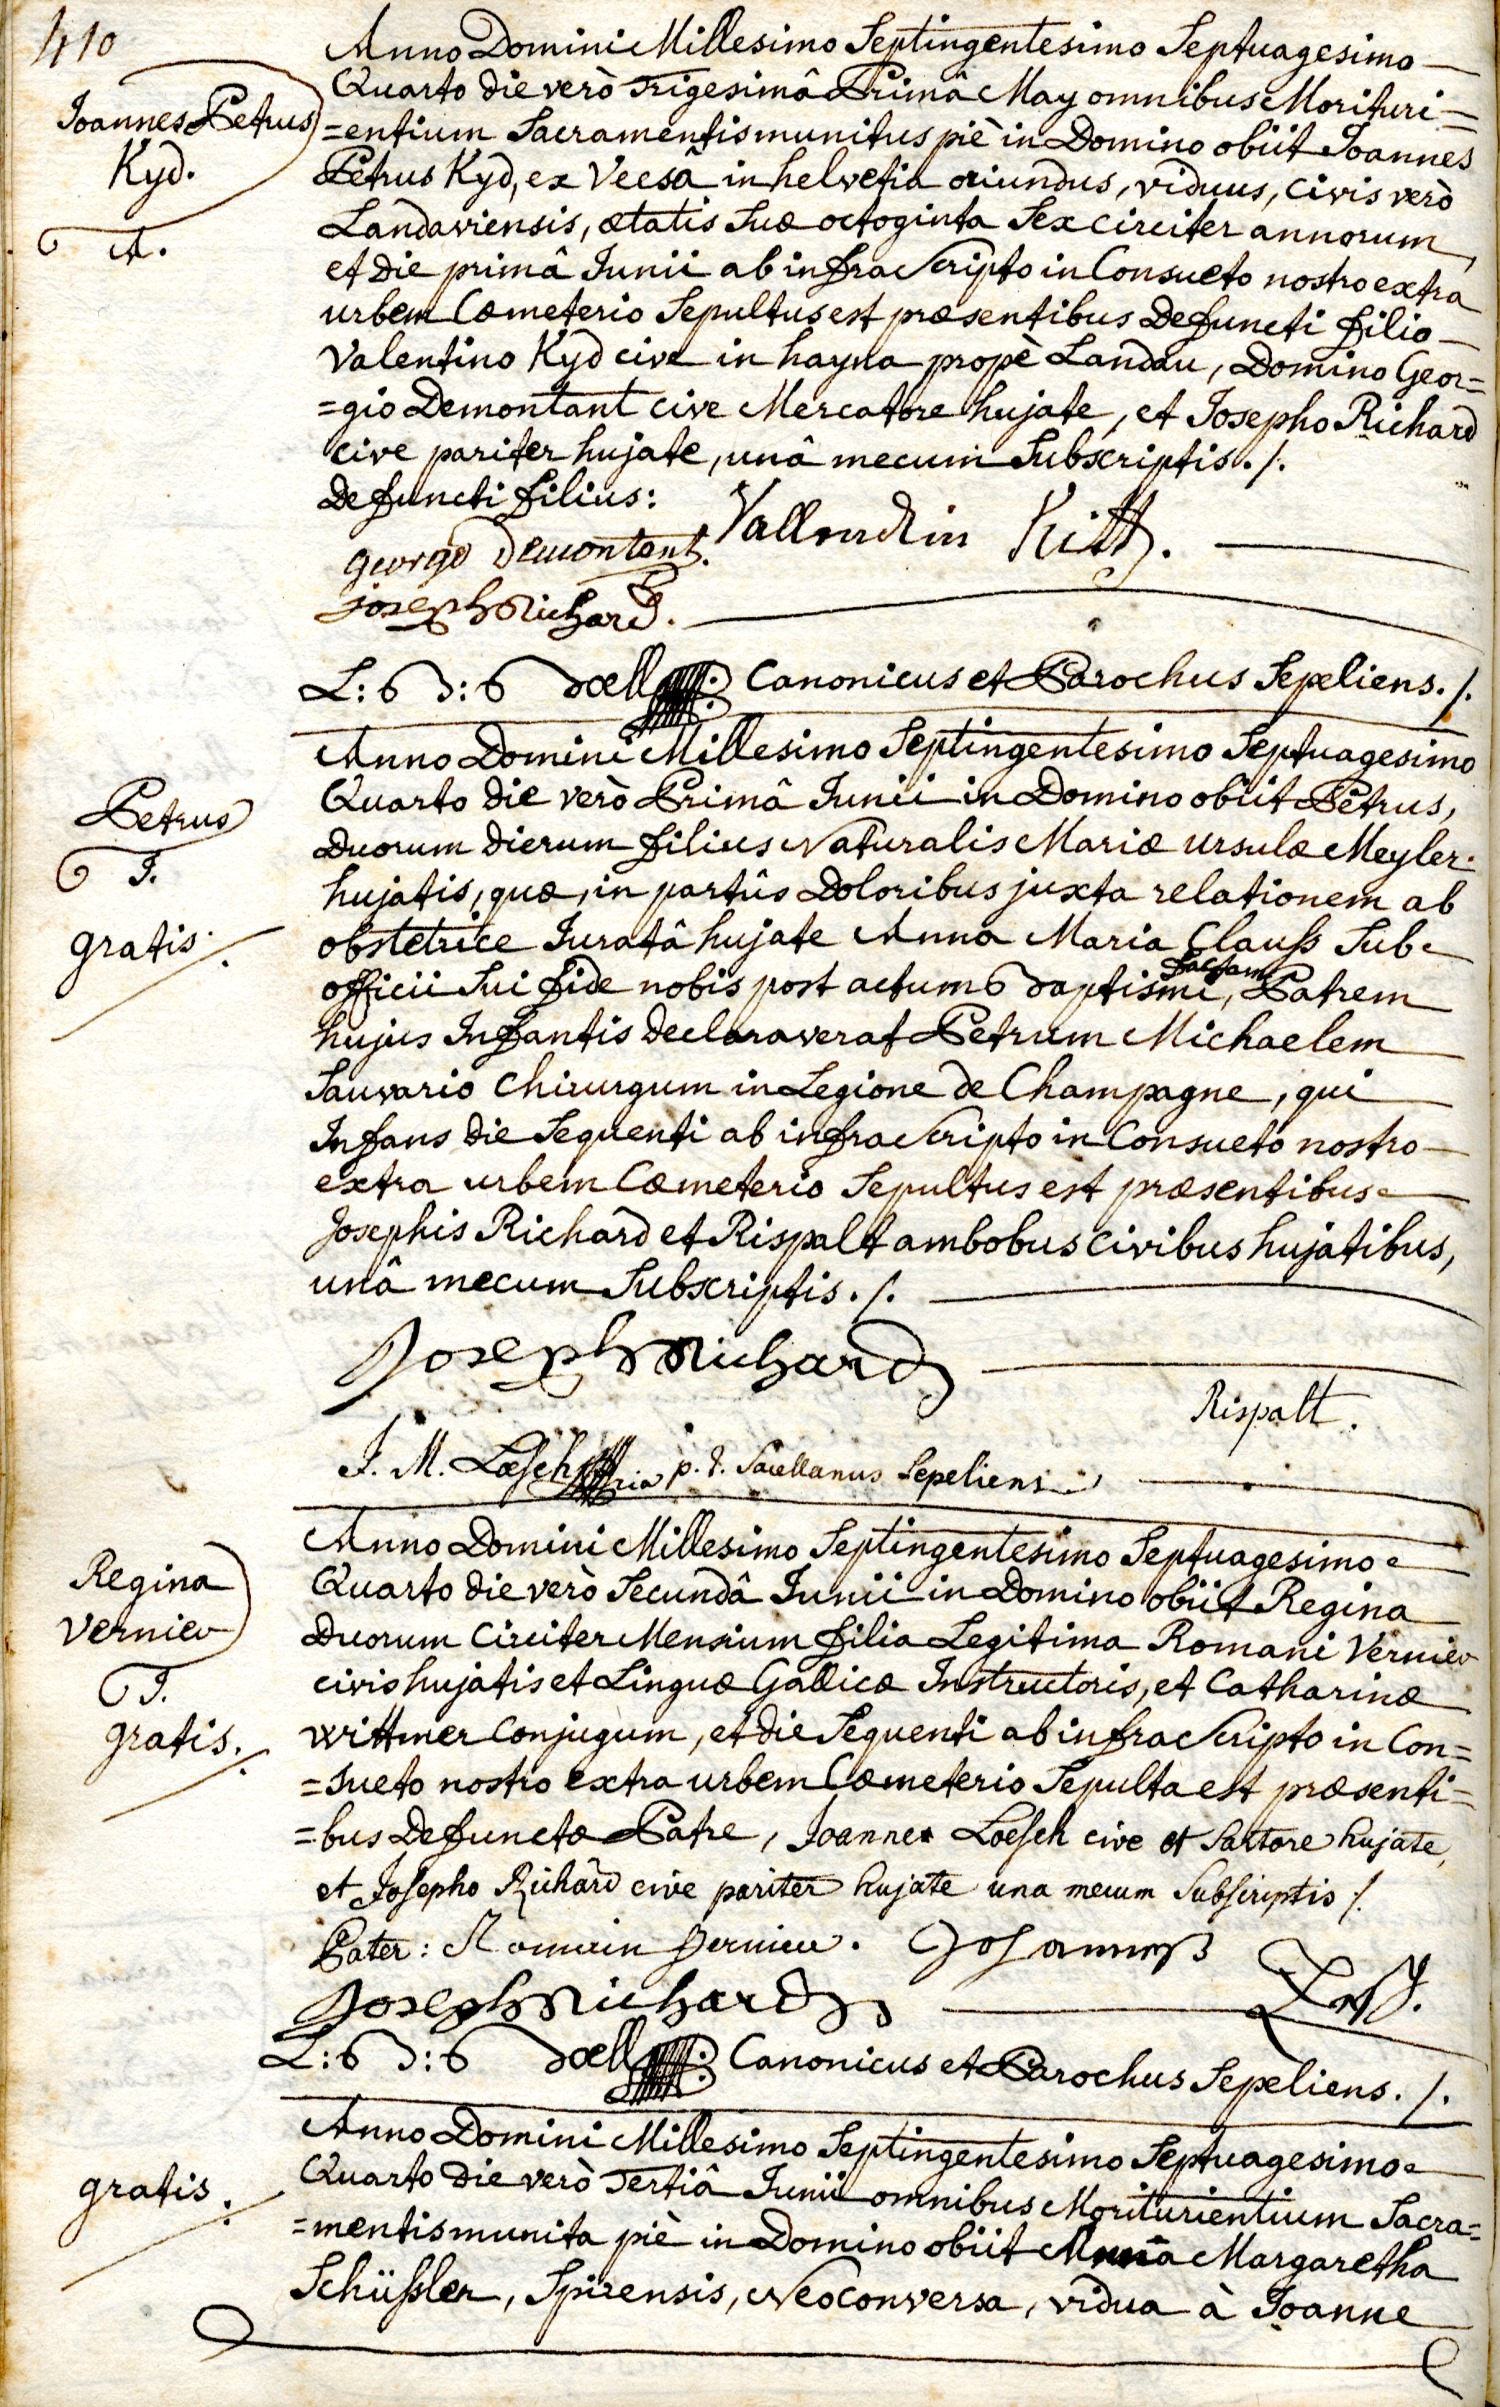 410
Joannes Petrus
Kyd.
A.
Anno Domini Millesimo Septingentesimo Septuagesimo
Quarto die verò Trigesimâ Primâ May omnibus Morituri=
=entium Sacramentis munitus piè in Domino obiit Joannes
Petrus Kyd, ex Veesâ in helvetia oriundus, viduus, Civis verò
Landaviensis, ætatis suæ octoginta sex circiter annorum,
et die primâ Junii ab infra Scripto in Consueto nostro extra
urbem Cœmeterio Sepultus est præsentibus Defuncti filio
Valentino Kyd cive in hayna propè Landau, Domino Geor=
=gio Demontant cive Mercatore hujate, et Josepho Richard
cive pariter hujate, unâ mecum Subscriptis ./.
Defuncti filius: Vallendin Kitt.
george demontant.
joseph Richard.
L: B: Boell Canonicus et Parochus Sepeliens ./.
Petrus
I.
gratis.
Anno Domini Millesimo Septingentesimo Septuagesimo
Quarto die verò Primâ Junii in Domino obiit Petrus,
Duorum dierum filius Naturalis Mariæ Ursulæ Meyler
hujatis, quæ, in partûs Doloribus juxta relationem ab
obstetrice Juratâ hujate Anna Maria Clauß Sub
officii sui fide nobis post actum Baptismi factam, Patrem
hujus Infantis declaraverat Petrum Michaelem
Sauvario Chirurgum in Legione de Champagne, qui
Infans die Sequenti ab infra Scripto in Consueto nostro
extra urbem Cœmeterio Sepultus est præsentibus
Josephis Richard et Rispalt ambobus civibus hujatibus,
unâ mecum Subscriptis ./.
Joseph Richard
Rispalt.
J. M. Loesch p. t. Sacellanus Sepeliens
Regina
Vernier
I.
gratis.
Anno Domini Millesimo Septingentesimo Septuagesimo
Quarto die verò Secundâ Junii in Domino obiit Regina
Duorum Circiter Mensium filia Legitima Romani Vernier
civis hujatis et Linguæ Gallicæ Instructoris, et Catharinæ
Wittmer Conjugum, et die Sequenti ab infra Scripto in Con=
=sueto nostro extra urbem Cœmeterio Sepulta est præsenti=
=bus Defunctæ Patre, Joanne Loesch cive et Sartore hujate,
et Josepho Richard cive pariter hujate una mecum Subscriptis ./.
Pater: Romain Vernier. Johanneß
Joseph Richard Lesch.
L: B: Boell Canonicus et Parochus Sepeliens ./.
gratis.
Anno Domini Millesimo Septingentesimo Septuagesimo
Quarto die verò Tertiâ Junii omnibus Moriturientium Sacra=
=mentis munita piè in Domino obiit Maria Margaretha
Schüssler, Spirensis, Neoconversa, vidua à Joanne